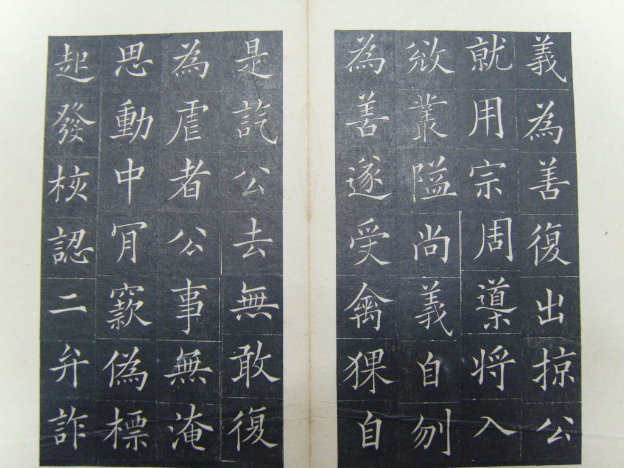 義為善復出掠公
就用宗周将入
叢隘尚義自刎
為善遂受禽猓自
是訖公去無敢復
為虐者公事無淹
思動中肎窾偽標
起發核認二弁詐